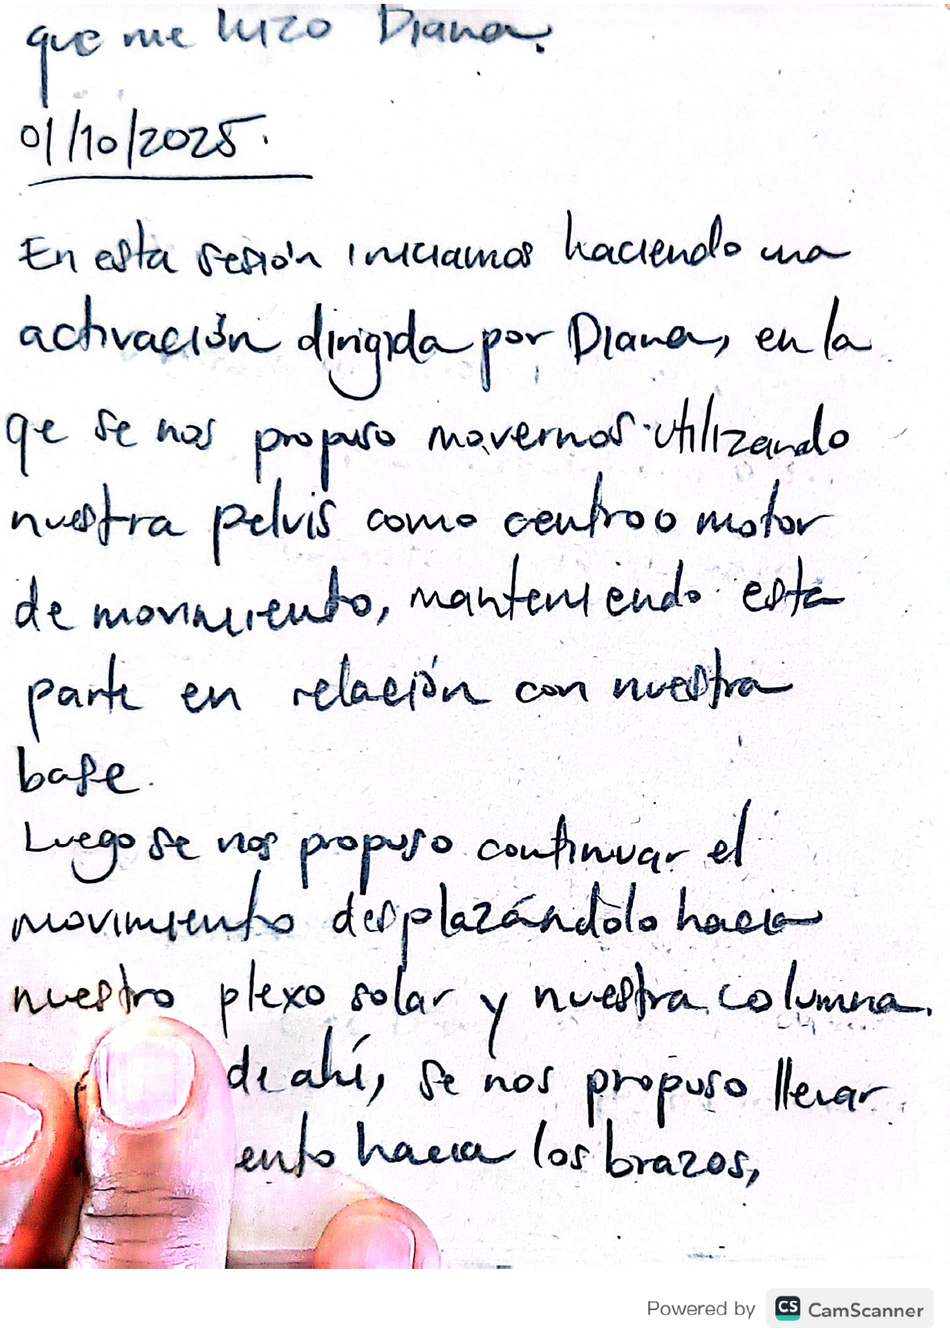 que me hizo Diana.
01/10/2025.
En esta sesión iniciamos haciendo una
activación dirigida por Diana, en la
qe se nos propuso movernos utilizando
nuestra pelvis como centro o motor
de movimiento, manteniendo esta
parte en relación con nuestra
base.
Luego se nos propuso continuar el
movimiento desplazándolo hacia
nuestro plexo solar y nuestra columna.
de ahí, se nos propuso llevar
ento hacia los brazos,
Powered by CS CamScanner